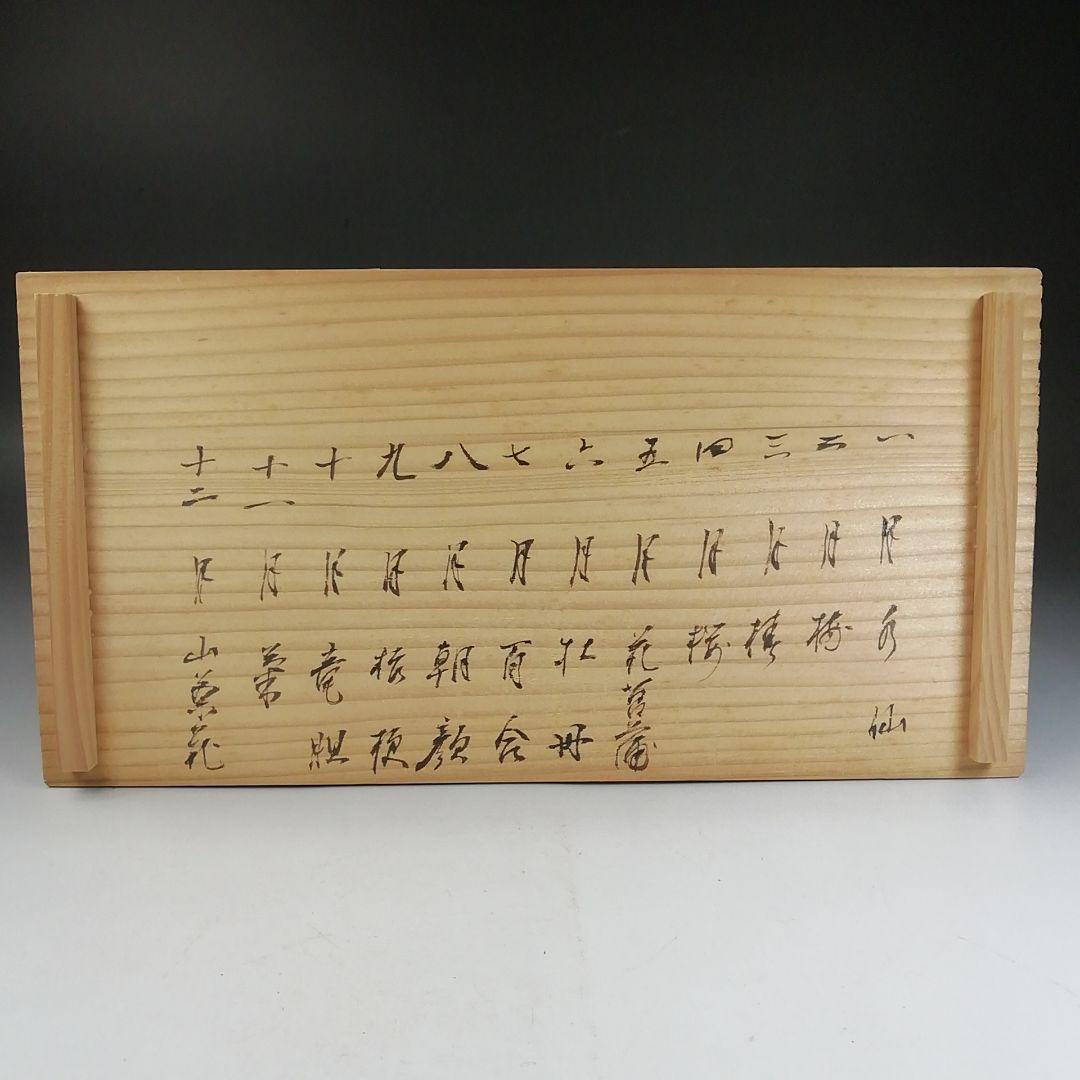 一月水仙
二月梅
三月椿
四月桜
五月花菖蒲
六月牡丹
七月百合
八月朝顔
九月桔梗
十月竜胆
十一月菊
十二月山茶花